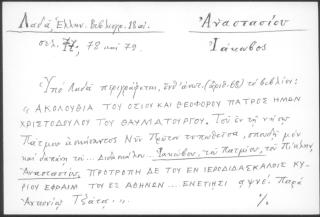 Λαδᾶ, Ἑλλην. Βιβλιογρ. 18 αἰ.
σελ. 77, 78 καὶ 79.
Ἀναστασίου
Ἰάκωβος
Ὑπὸ Λαδᾶ περιγράφεται, ὑπ' ἀριθ. (ἀριθ. 68) τὸ βιβλίον:
" ΑΚΟΛΟΥΘΙΑ ΤΟΥ ΟΣΙΟΥ ΚΑΙ ΘΕΟΦΟΡΟΥ ΠΑΤΡΟΣ ΗΜΩΝ
ΧΡΙΣΤΟΔΟΥΛΟΥ ΤΟΥ ΘΑΥΜΑΤΟΥΡΓΟΥ. Τοῦ ἐν τῇ νήσῳ
Πάτμῳ ἀσκήσαντος Νῦν Πρῶτον τυπωθεῖσα, σπουδῇ μὲν
καὶ δαπάνῃ τοῦ ... Διδασκάλου ... Ἰακώβου, τοῦ Πατμίου, τοῦ Πίκλην
Ἀναστασίου. ΠΡΟΤΡΟΠΗ ΔΕ ΤΟΥ ΕΝ ΙΕΡΟΔΙΔΑΣΚΑΛΟΙΣ ΚΥ-
ΡΙΟΥ ΕΦΡΑΙΜ ΤΟΥ ΕΞ ΑΘΗΝΩΝ ... ΕΝΕΤΙΗΣΙ αψνέ. Παρὰ
Ἀντωνίῳ Τζάτᾳ ..."
%.